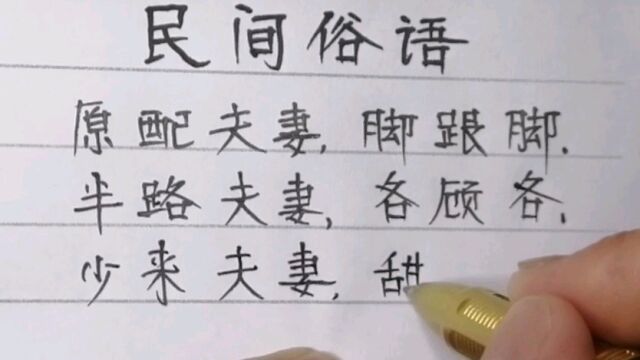 民间俗语
原配夫妻,脚跟脚.
半路夫妻,各顾各.
少来夫妻,甜